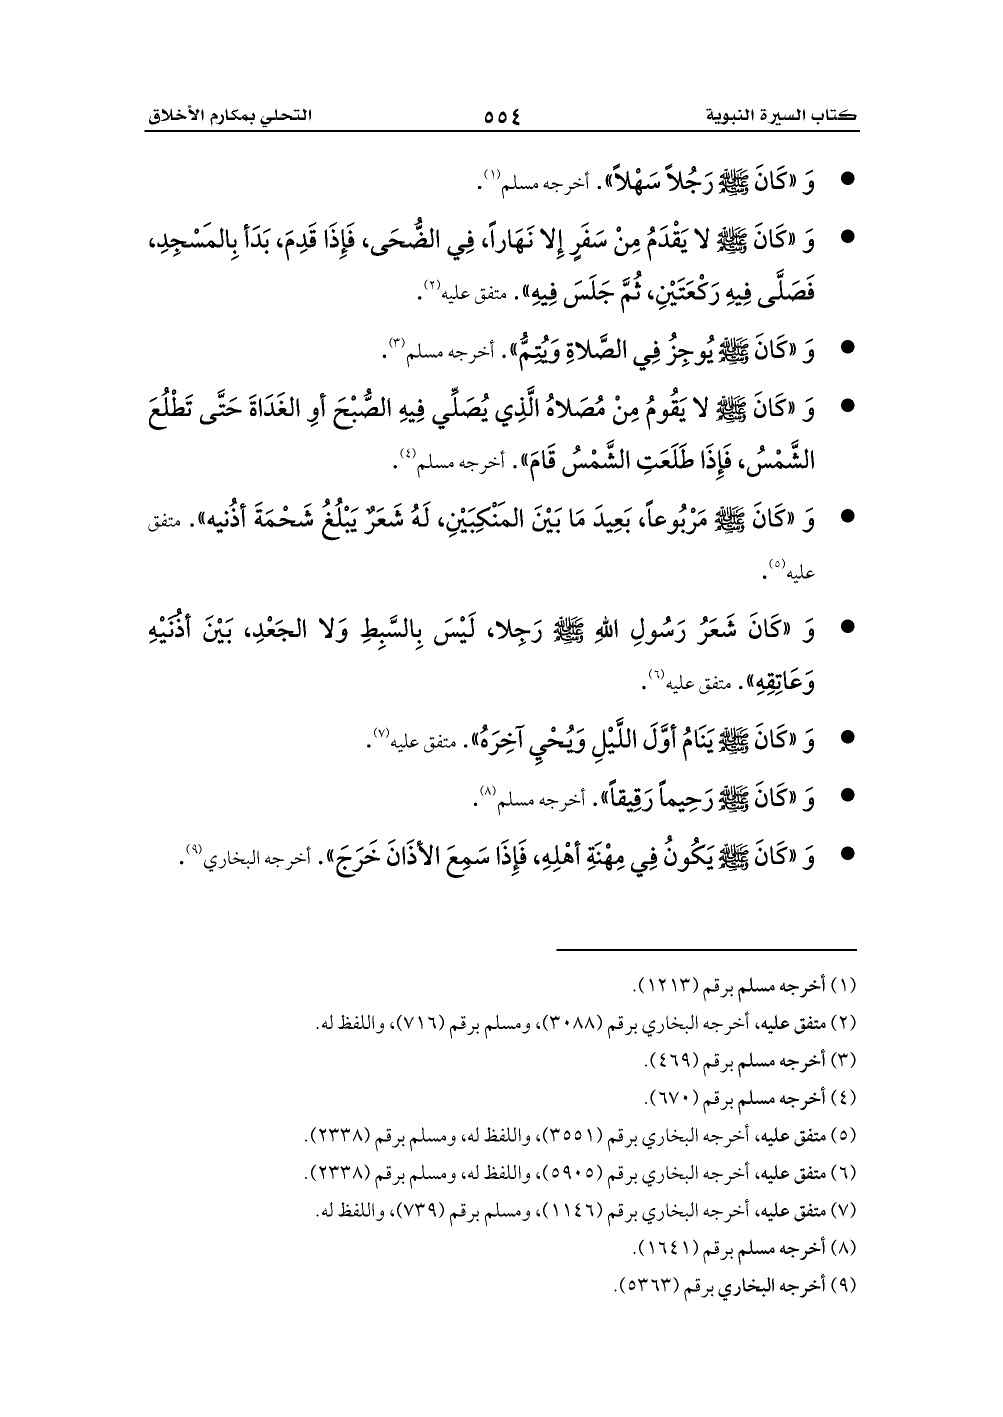 كتاب السيرة النبوية ٥٥٤ التحلي بمكارم الأخلاق
● وَ «كَانَ ﷺ رَجُلاً سَهْلاً». أخرجه مسلم(١).
● وَ «كَانَ ﷺ لا يَقْدَمُ مِنْ سَفَرٍ إِلا نَهَاراً، فِي الضُّحَى، فَإِذَا قَدِمَ، بَدَأ بِالمَسْجِدِ،
فَصَلَّى فِيهِ رَكْعَتَيْنِ، ثُمَّ جَلَسَ فِيهِ». متفق عليه(٢).
● وَ «كَانَ ﷺ يُوجِزُ فِي الصَّلاةِ وَيُتِمُّ». أخرجه مسلم(٣).
● وَ «كَانَ ﷺ لا يَقُومُ مِنْ مُصَلاهُ الَّذِي يُصَلِّي فِيهِ الصُّبْحَ أوِ الغَدَاةَ حَتَّى تَطْلُعَ
الشَّمْسُ، فَإِذَا طَلَعَتِ الشَّمْسُ قَامَ». أخرجه مسلم(٤).
● وَ «كَانَ ﷺ مَرْبُوعاً، بَعِيدَ مَا بَيْنَ المَنْكِبَيْنِ، لَهُ شَعَرٌ يَبْلُغُ شَحْمَةَ أذُنيه». متفق
عليه(٥).
● وَ «كَانَ شَعَرُ رَسُولِ اللهِ ﷺ رَجِلا، لَيْسَ بِالسَّبِطِ وَلا الجَعْدِ، بَيْنَ أذُنَيْهِ
وَعَاتِقِهِ». متفق عليه(٦).
● وَ «كَانَ ﷺ يَنَامُ أوَّلَ اللَّيْلِ وَيُحْيِ آخِرَهُ». متفق عليه(٧).
● وَ «كَانَ ﷺ رَحِيماً رَقِيقاً». أخرجه مسلم(٨).
● وَ «كَانَ ﷺ يَكُونُ فِي مِهْنَةِ أهْلِهِ، فَإِذَا سَمِعَ الأذَانَ خَرَجَ». أخرجه البخاري(٩).
(١) أخرجه مسلم برقم (١٢١٣).
(٢) متفق عليه، أخرجه البخاري برقم (٣٠٨٨)، ومسلم برقم (٧١٦)، واللفظ له.
(٣) أخرجه مسلم برقم (٤٦٩).
(٤) أخرجه مسلم برقم (٦٧٠).
(٥) متفق عليه، أخرجه البخاري برقم (٣٥٥١)، واللفظ له، ومسلم برقم (٢٣٣٨).
(٦) متفق عليه، أخرجه البخاري برقم (٥٩٠٥)، واللفظ له، ومسلم برقم (٢٣٣٨).
(٧) متفق عليه، أخرجه البخاري برقم (١١٤٦)، ومسلم برقم (٧٣٩)، واللفظ له.
(٨) أخرجه مسلم برقم (١٦٤١).
(٩) أخرجه البخاري برقم (٥٣٦٣).